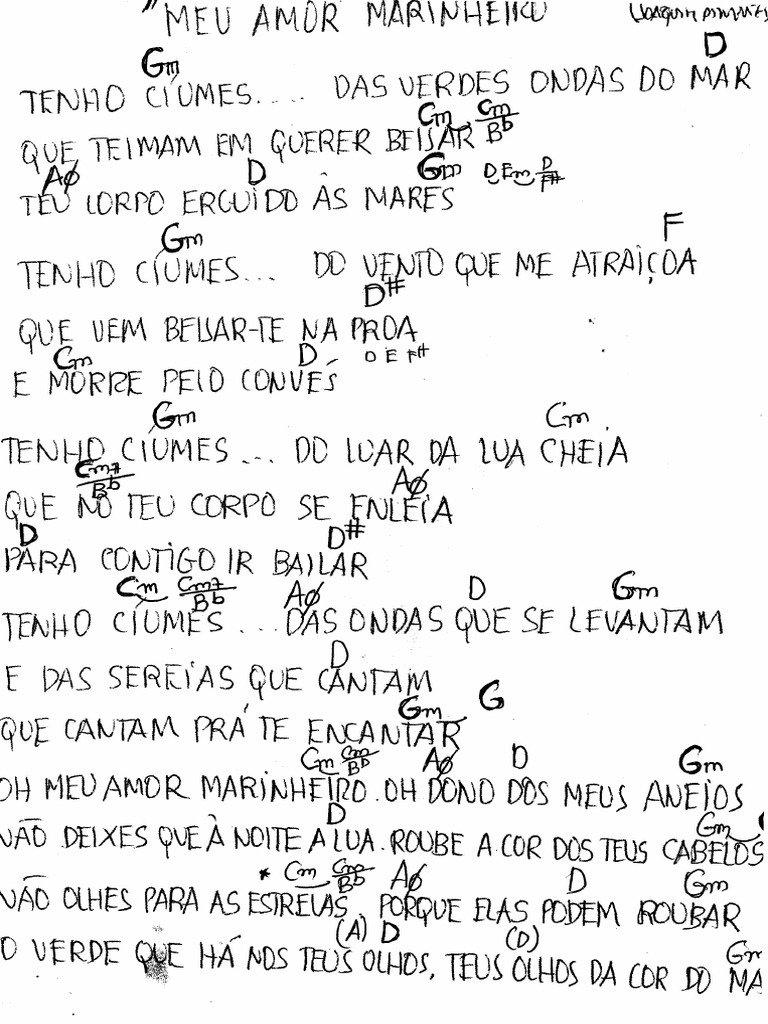 "MEU AMOR MARINHEIRO (JOAQUIM PIMENTEL
Gm D
TENHO CIÚMES.... DAS VERDES ONDAS DO MAR
Cm Cm/Bb
QUE TEIMAM EM QUERER BEIJAR
AØ D Gm D Em D/F#
TEU CORPO ERGUIDO ÀS MARES
Gm F
TENHO CIÚMES... DO VENTO QUE ME ATRAIÇOA
D#
QUE VEM BEIJAR-TE NA PROA
Cm D D E F#
E MORRE PELO CONVÉS
Gm Cm
TENHO CIÚMES... DO LUAR DA LUA CHEIA
Cm7/Bb AØ
QUE NO TEU CORPO SE ENLEIA
D D#
PARA CONTIGO IR BAILAR
Cm Cm7/Bb AØ D Gm
TENHO CIÚMES... DAS ONDAS QUE SE LEVANTAM
D
E DAS SEREIAS QUE CANTAM
Gm G
QUE CANTAM PRÁ TE ENCANTAR
Cm Cm/Bb AØ D Gm
OH MEU AMOR MARINHEIRO. OH DONO DOS MEUS ANEIOS
D Gm
NÃO DEIXES QUE À NOITE A LUA. ROUBE A COR DOS TEUS CABELOS
* Cm Cm/Bb AØ D Gm
NÃO OLHES PARA AS ESTRELAS, PORQUE ELAS PODEM ROUBAR
(A) D (D) Gm
O VERDE QUE HÁ NOS TEUS OLHOS, TEUS OLHOS DA COR DO MA